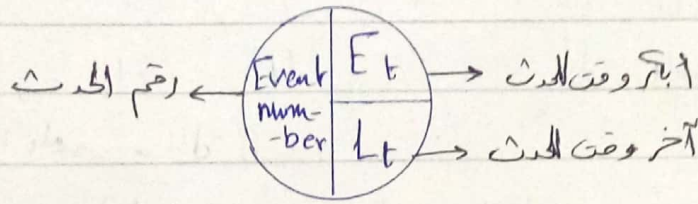 رقم الحدث ← Event num-ber
E t → أبكر وقت للحدث
L t → آخر وقت للحدث